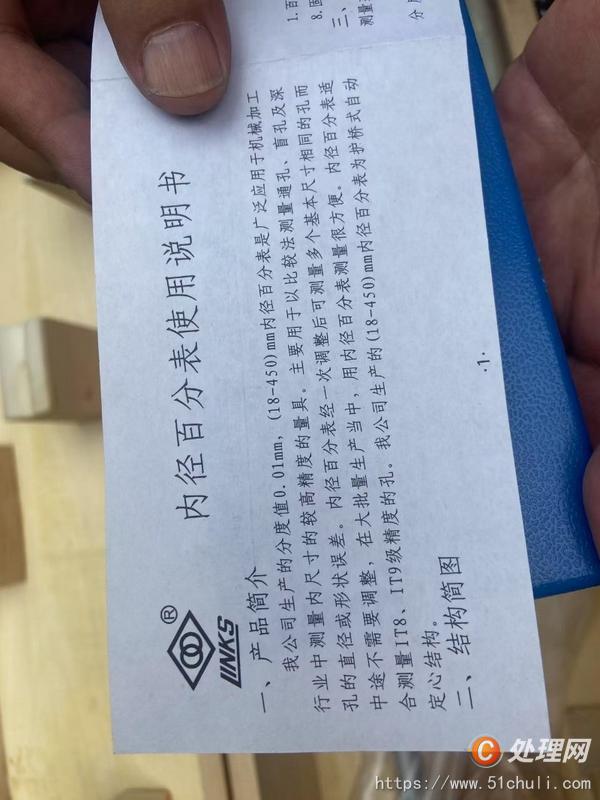 LINKS
®
内径百分表使用说明书
一、产品简介
我公司生产的分度值0.01mm, (18-450)mm内径百分表是广泛应用于机械加工
行业中测量内尺寸的较高精度的量具。主要用于以比较法测量通孔、盲孔及深
孔的直径或形状误差。内径百分表经一次调整后可测量多个基本尺寸相同的孔而
中途不需要调整，在大批量生产当中，用内径百分表测量很方便。内径百分表适
合测量IT8、IT9级精度的孔。我公司生产的(18-450)mm内径百分表为护桥式自动
定心结构。
二、结构简图
·1·
1.百
8.固
三、
测量
C 处理网
https://www.51chuli.com